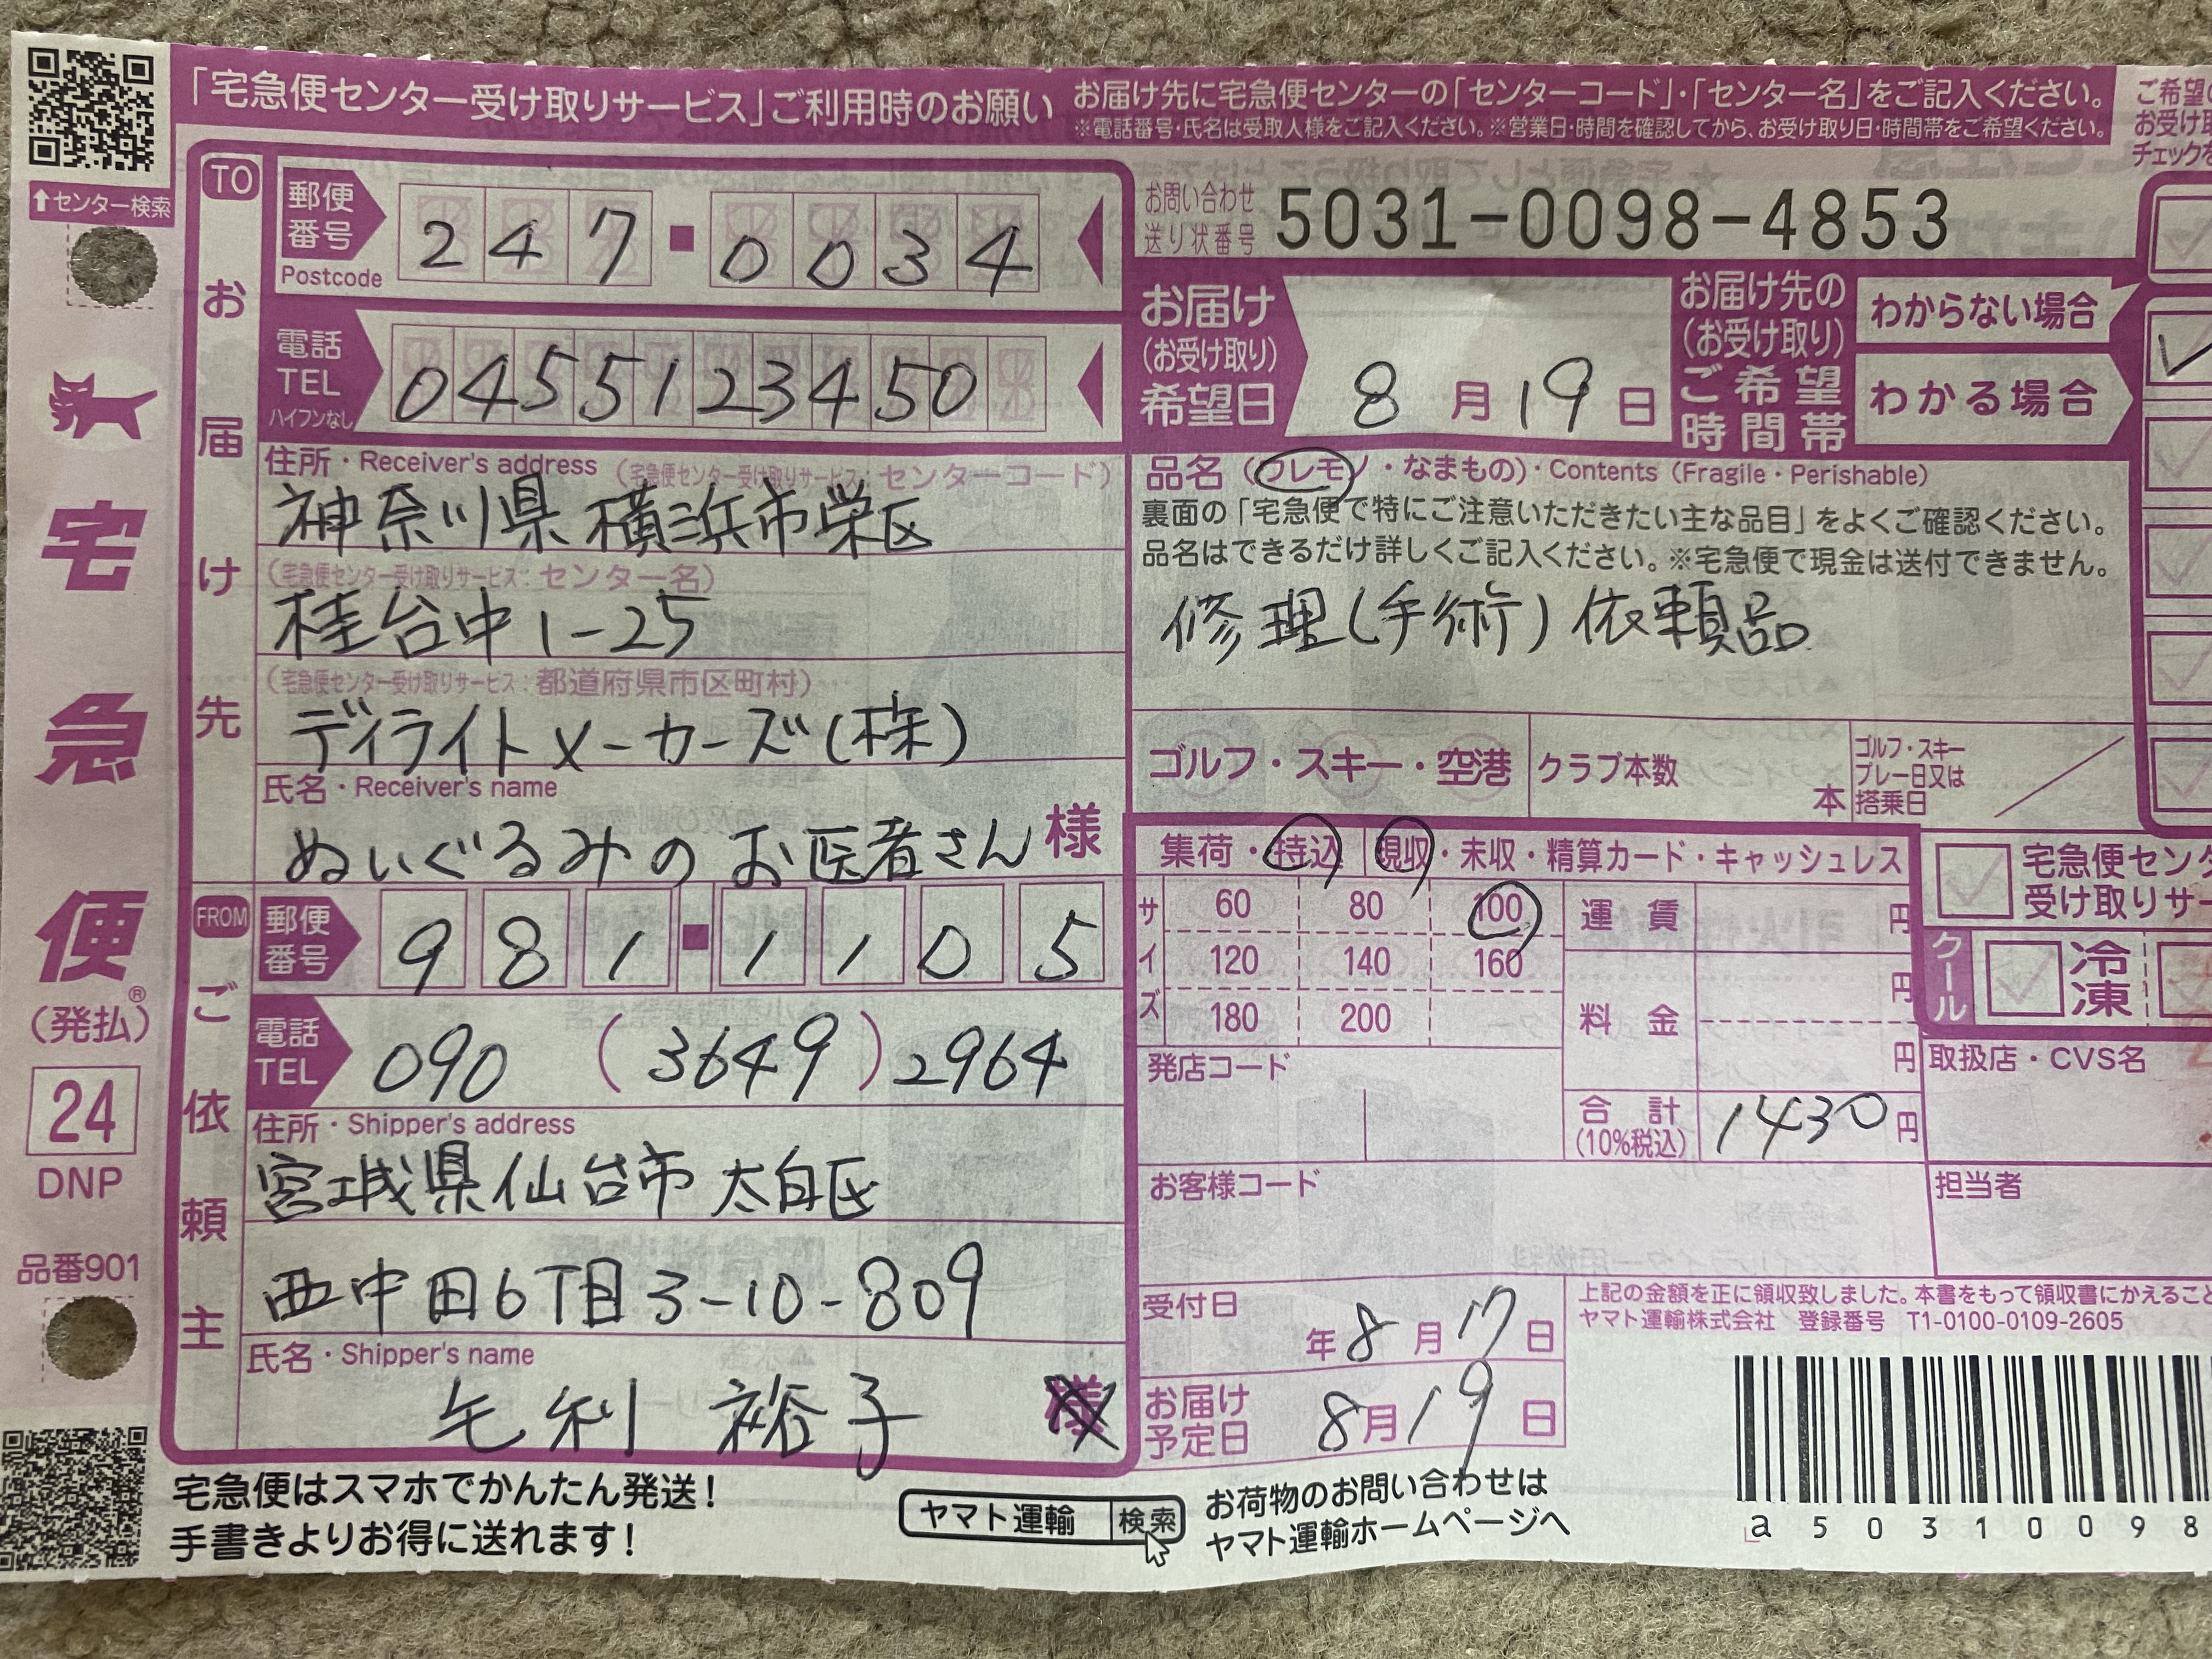 「宅急便センター受け取りサービス」ご利用時のお願い
お届け先に宅急便センターの「センターコード」・「センター名」をご記入ください。
※電話番号・氏名は受取人様をご記入ください。※営業日・時間を確認してから、お受け取り日・時間帯をご希望ください。
ご希望の
お受け取
チェックを
↑センター検索
宅急便
(発払)®
24
DNP
品番901
TO
お届け先
郵便番号
Postcode
247-0034
電話
TEL
ハイフンなし
0455123450
住所・Receiver's address (宅急便センター受け取りサービス:センターコード)
神奈川県横浜市栄区
(宅急便センター受け取りサービス:センター名)
桂台中1-25
(宅急便センター受け取りサービス:都道府県市区町村)
デイライトメーカーズ(株)
氏名・Receiver's name
ぬいぐるみのお医者さん 様
FROM
ご依頼主
郵便番号
981-1105
電話
TEL
090 (3649) 2964
住所・Shipper's address
宮城県仙台市太白区
西中田6丁目3-10-809
氏名・Shipper's name
毛利 裕子 様
お問い合わせ
送り状番号
5031-0098-4853
お届け
(お受け取り)
希望日
8月19日
お届け先の
(お受け取り)
ご希望
時間帯
わからない場合
わかる場合
品名(ワレモノ・なまもの)・Contents (Fragile・Perishable)
裏面の「宅急便で特にご注意いただきたい主な品目」をよくご確認ください。
品名はできるだけ詳しくご記入ください。※宅急便で現金は送付できません。
修理(手術)依頼品
ゴルフ・スキー・空港
クラブ本数
本
ゴルフ・スキー
プレー日又は
搭乗日
集荷・持込
現収・未収・精算カード・キャッシュレス
サイズ
60 80 100
120 140 160
180 200
運賃 円
料金 円
円
合計
(10%税込)
1430円
発店コード
お客様コード
宅急便セン
受け取りサー
クール
冷凍
取扱店・CVS名
担当者
受付日
年8月17日
お届け
予定日
8月19日
上記の金額を正に領収致しました。本書をもって領収書にかえること
ヤマト運輸株式会社 登録番号 T1-0100-0109-2605
a50310098
宅急便はスマホでかんたん発送!
手書きよりお得に送れます!
ヤマト運輸 検索
お荷物のお問い合わせは
ヤマト運輸ホームページへ